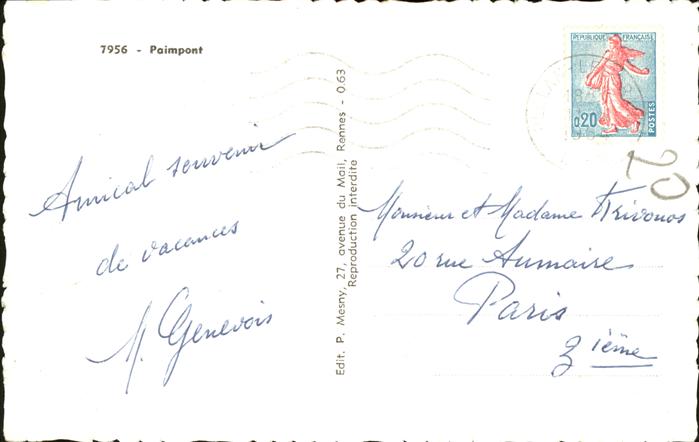 7956 - Paimpont
REPUBLIQUE FRANÇAISE
0,20
POSTES
20
Amical souvenir
de vacances
M. Genevois
Edit. P. Mesny, 27, avenue du Mail, Rennes - 0.63
Reproduction interdite
Monsieur et Madame Krivonos
20 rue Aumaire
Paris
3 ième